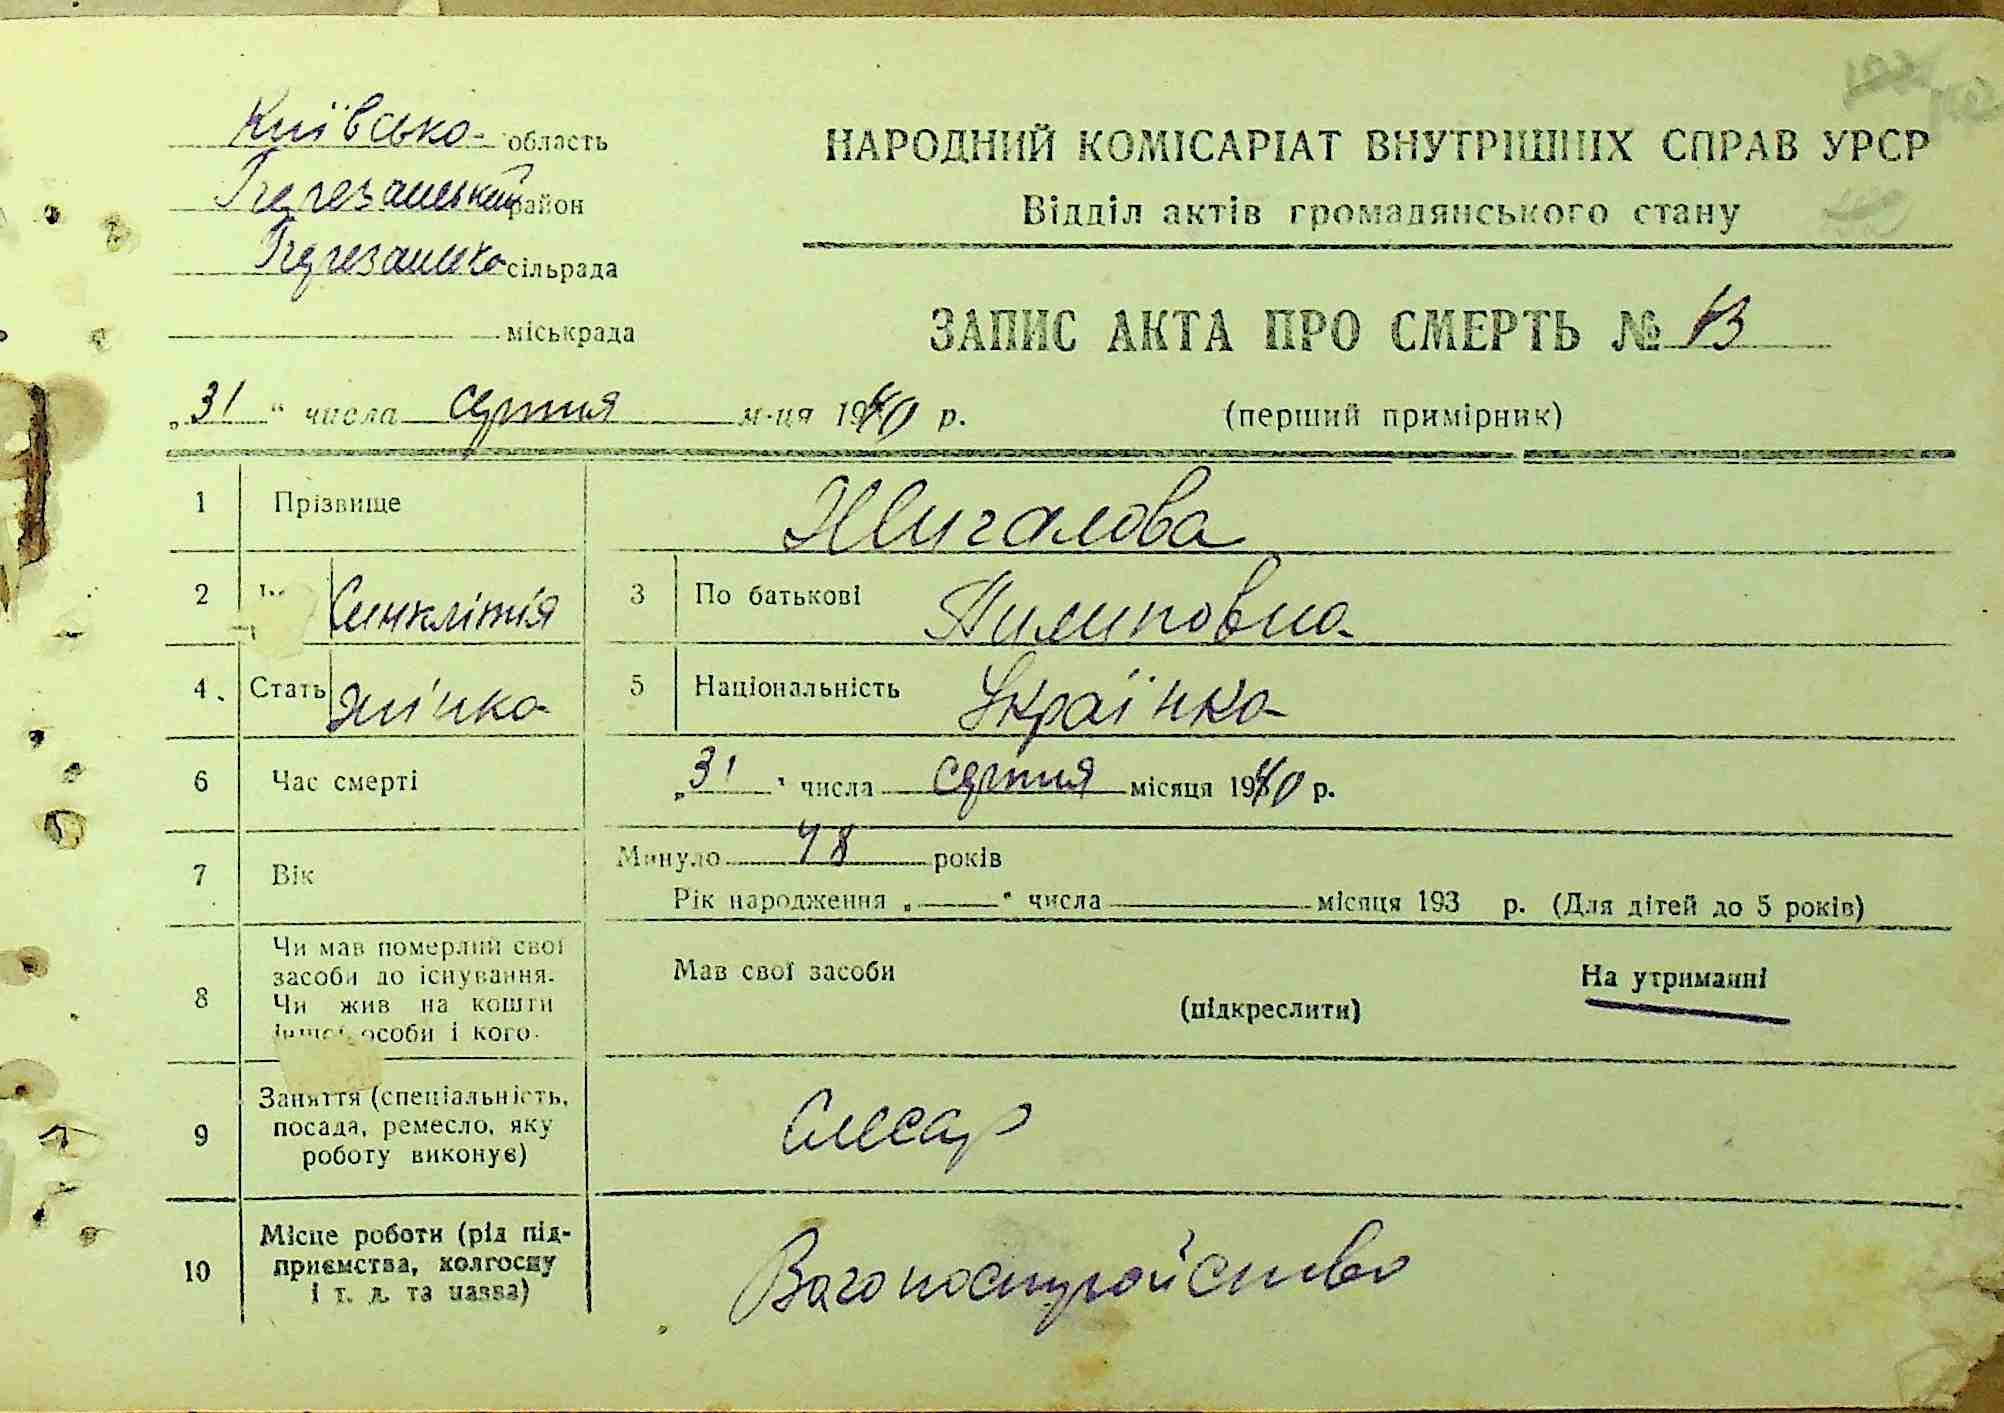 Київська область
район
сільрада
міськрада
НАРОДНИЙ КОМІСАРІАТ ВНУТРІШНІХ СПРАВ УРСР
Відділ актів громадянського стану
ЗАПИС АКТА ПРО СМЕРТЬ № 13
„31“ числа серпня м-ця 1940 р.
(перший примірник)
1 Прізвище Жигалова
2 Синклітія 3 По батькові Пилиповна
4. Стать жінка 5 Національність Українка
6 Час смерті „31“ числа серпня місяця 1940 р.
7 Вік Минуло 48 років
Рік народження „ “ числа місяця 193 р. (Для дітей до 5 років)
8 Чи мав померлий свої
засоби до існування.
Чи жив на кошти
іншої особи і кого.
Мав свої засоби На утриманні
(підкреслити)
9 Заняття (спеціальність,
посада, ремесло, яку
роботу виконує)
Слесар
10 Місце роботи (рід під-
приємства, колгоспу
і т. д. та назва)
Вагоностройство